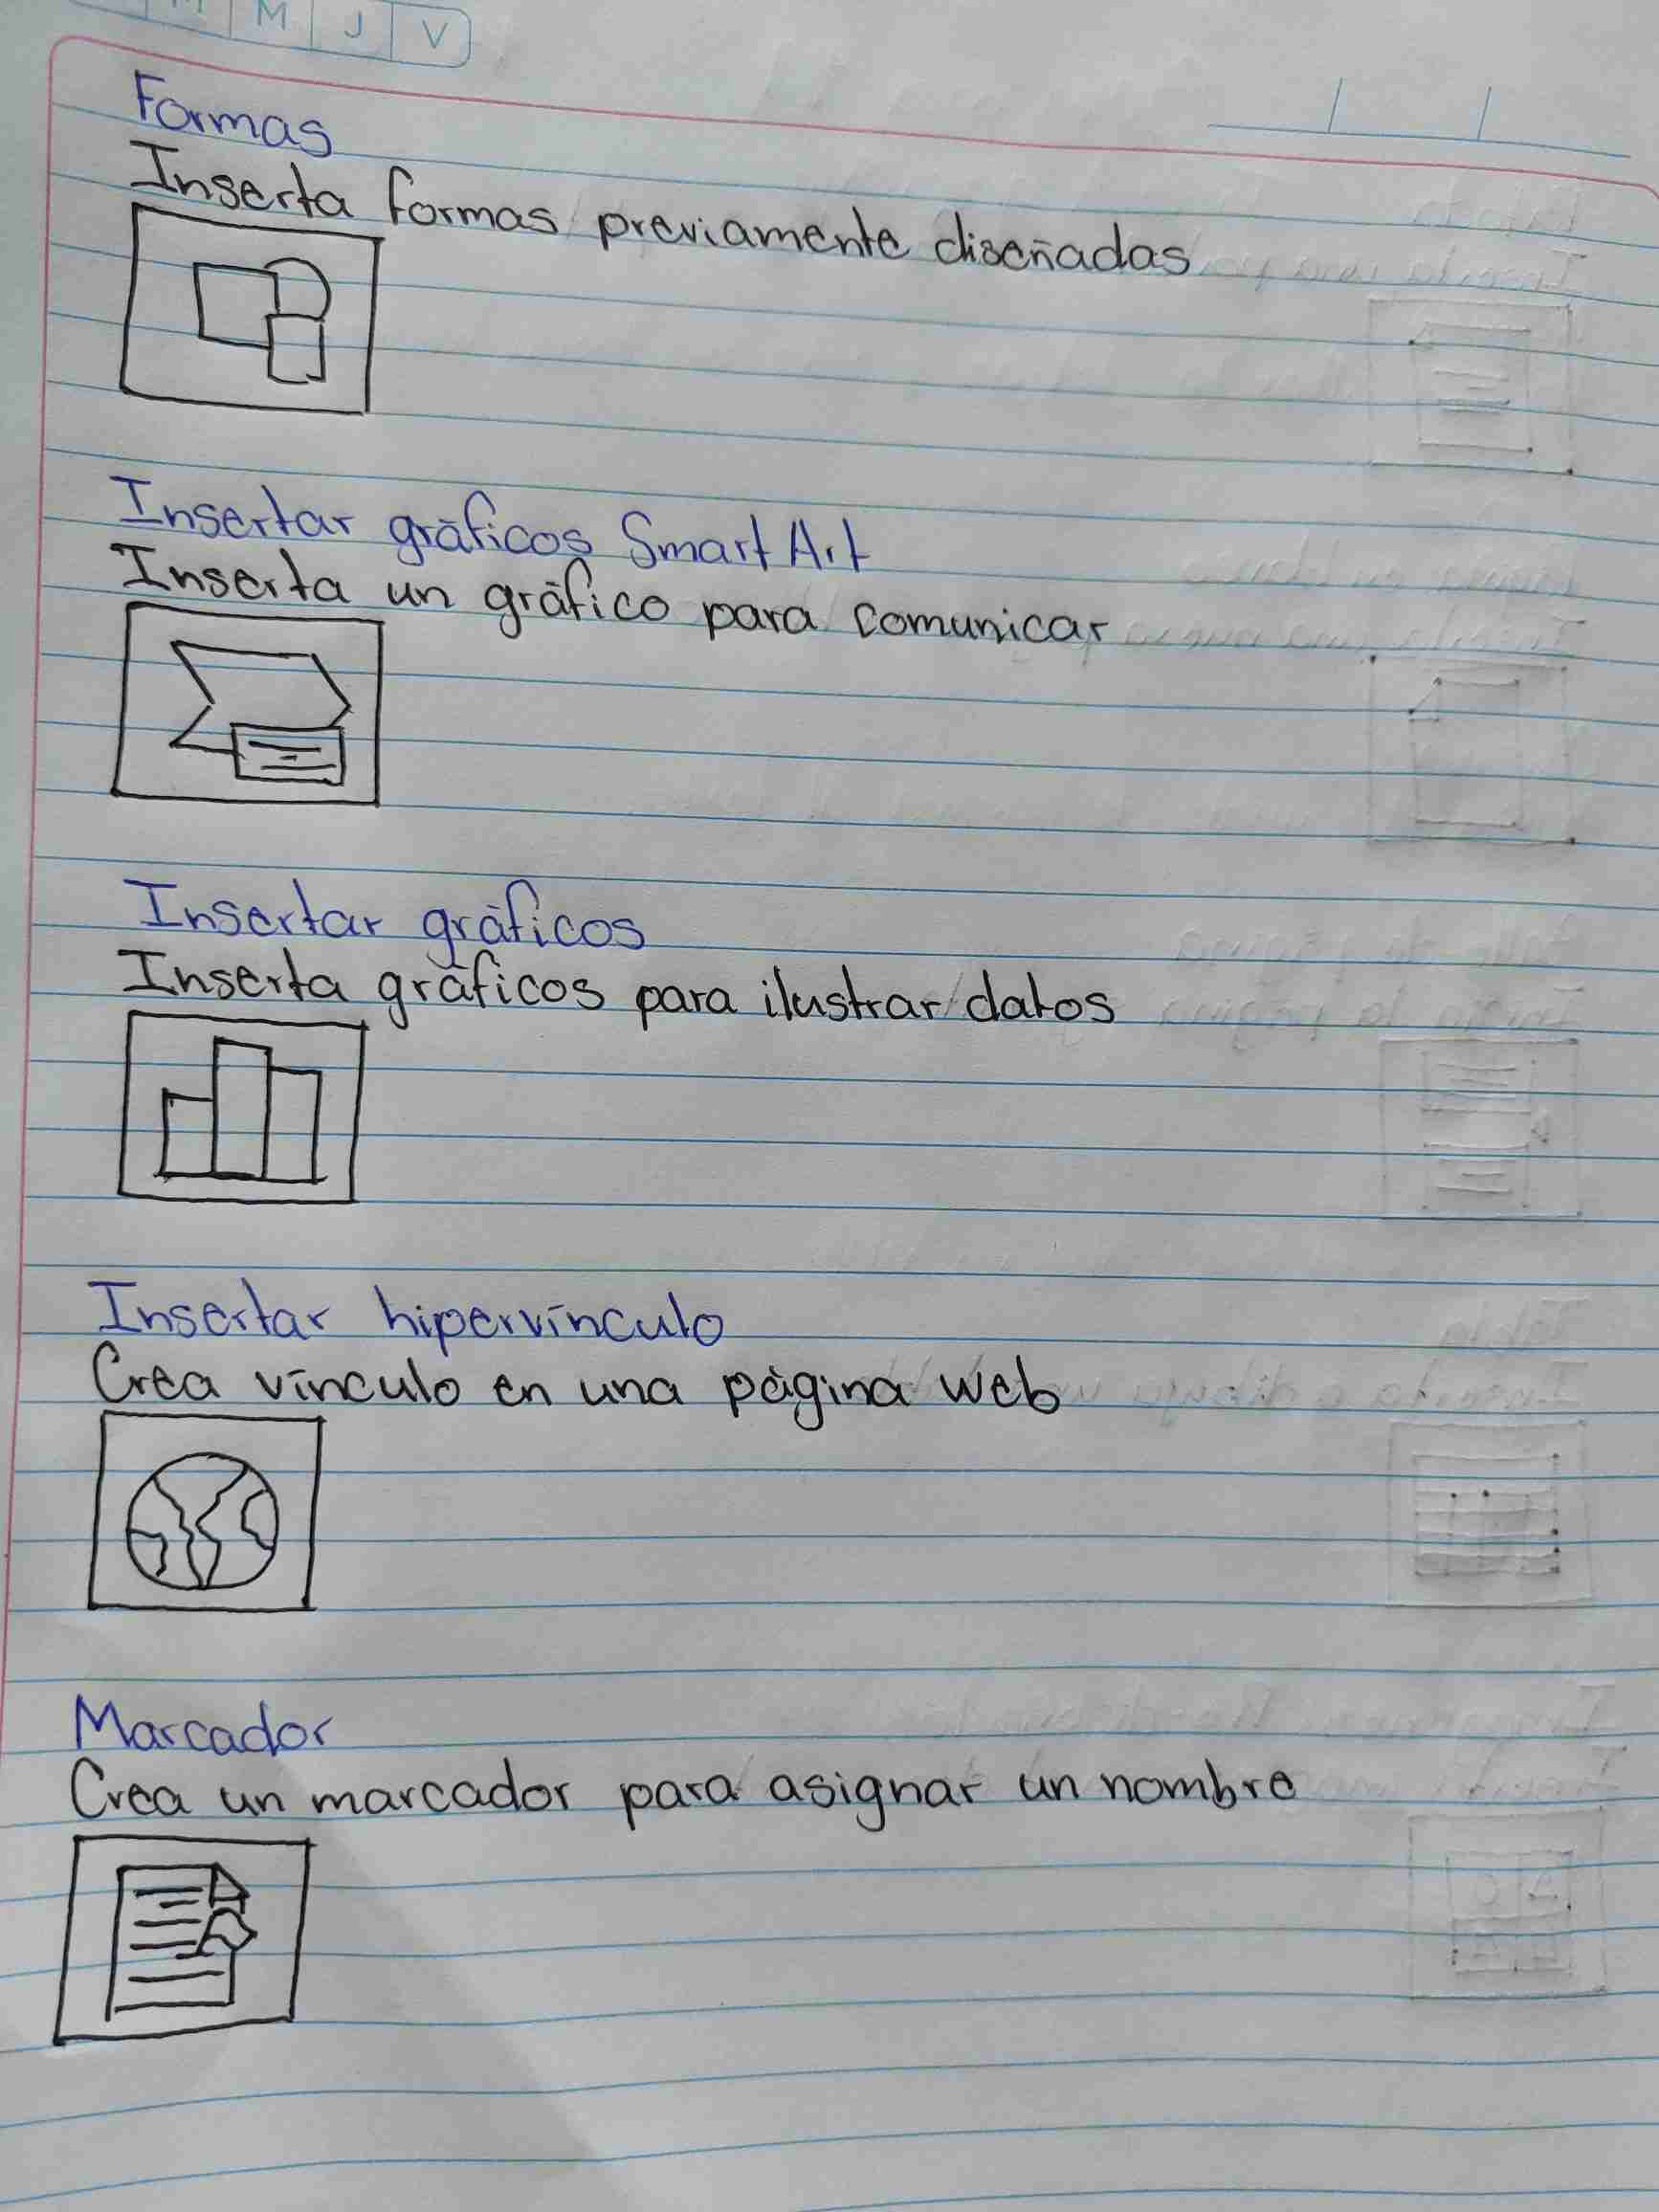 M J V
Formas
Inserta formas previamente diseñadas
Insertar gráficos SmartArt
Inserta un gráfico para comunicar
Insertar gráficos
Inserta gráficos para ilustrar datos
Insertar hipervínculo
Crea vínculo en una página web
Marcador
Crea un marcador para asignar un nombre